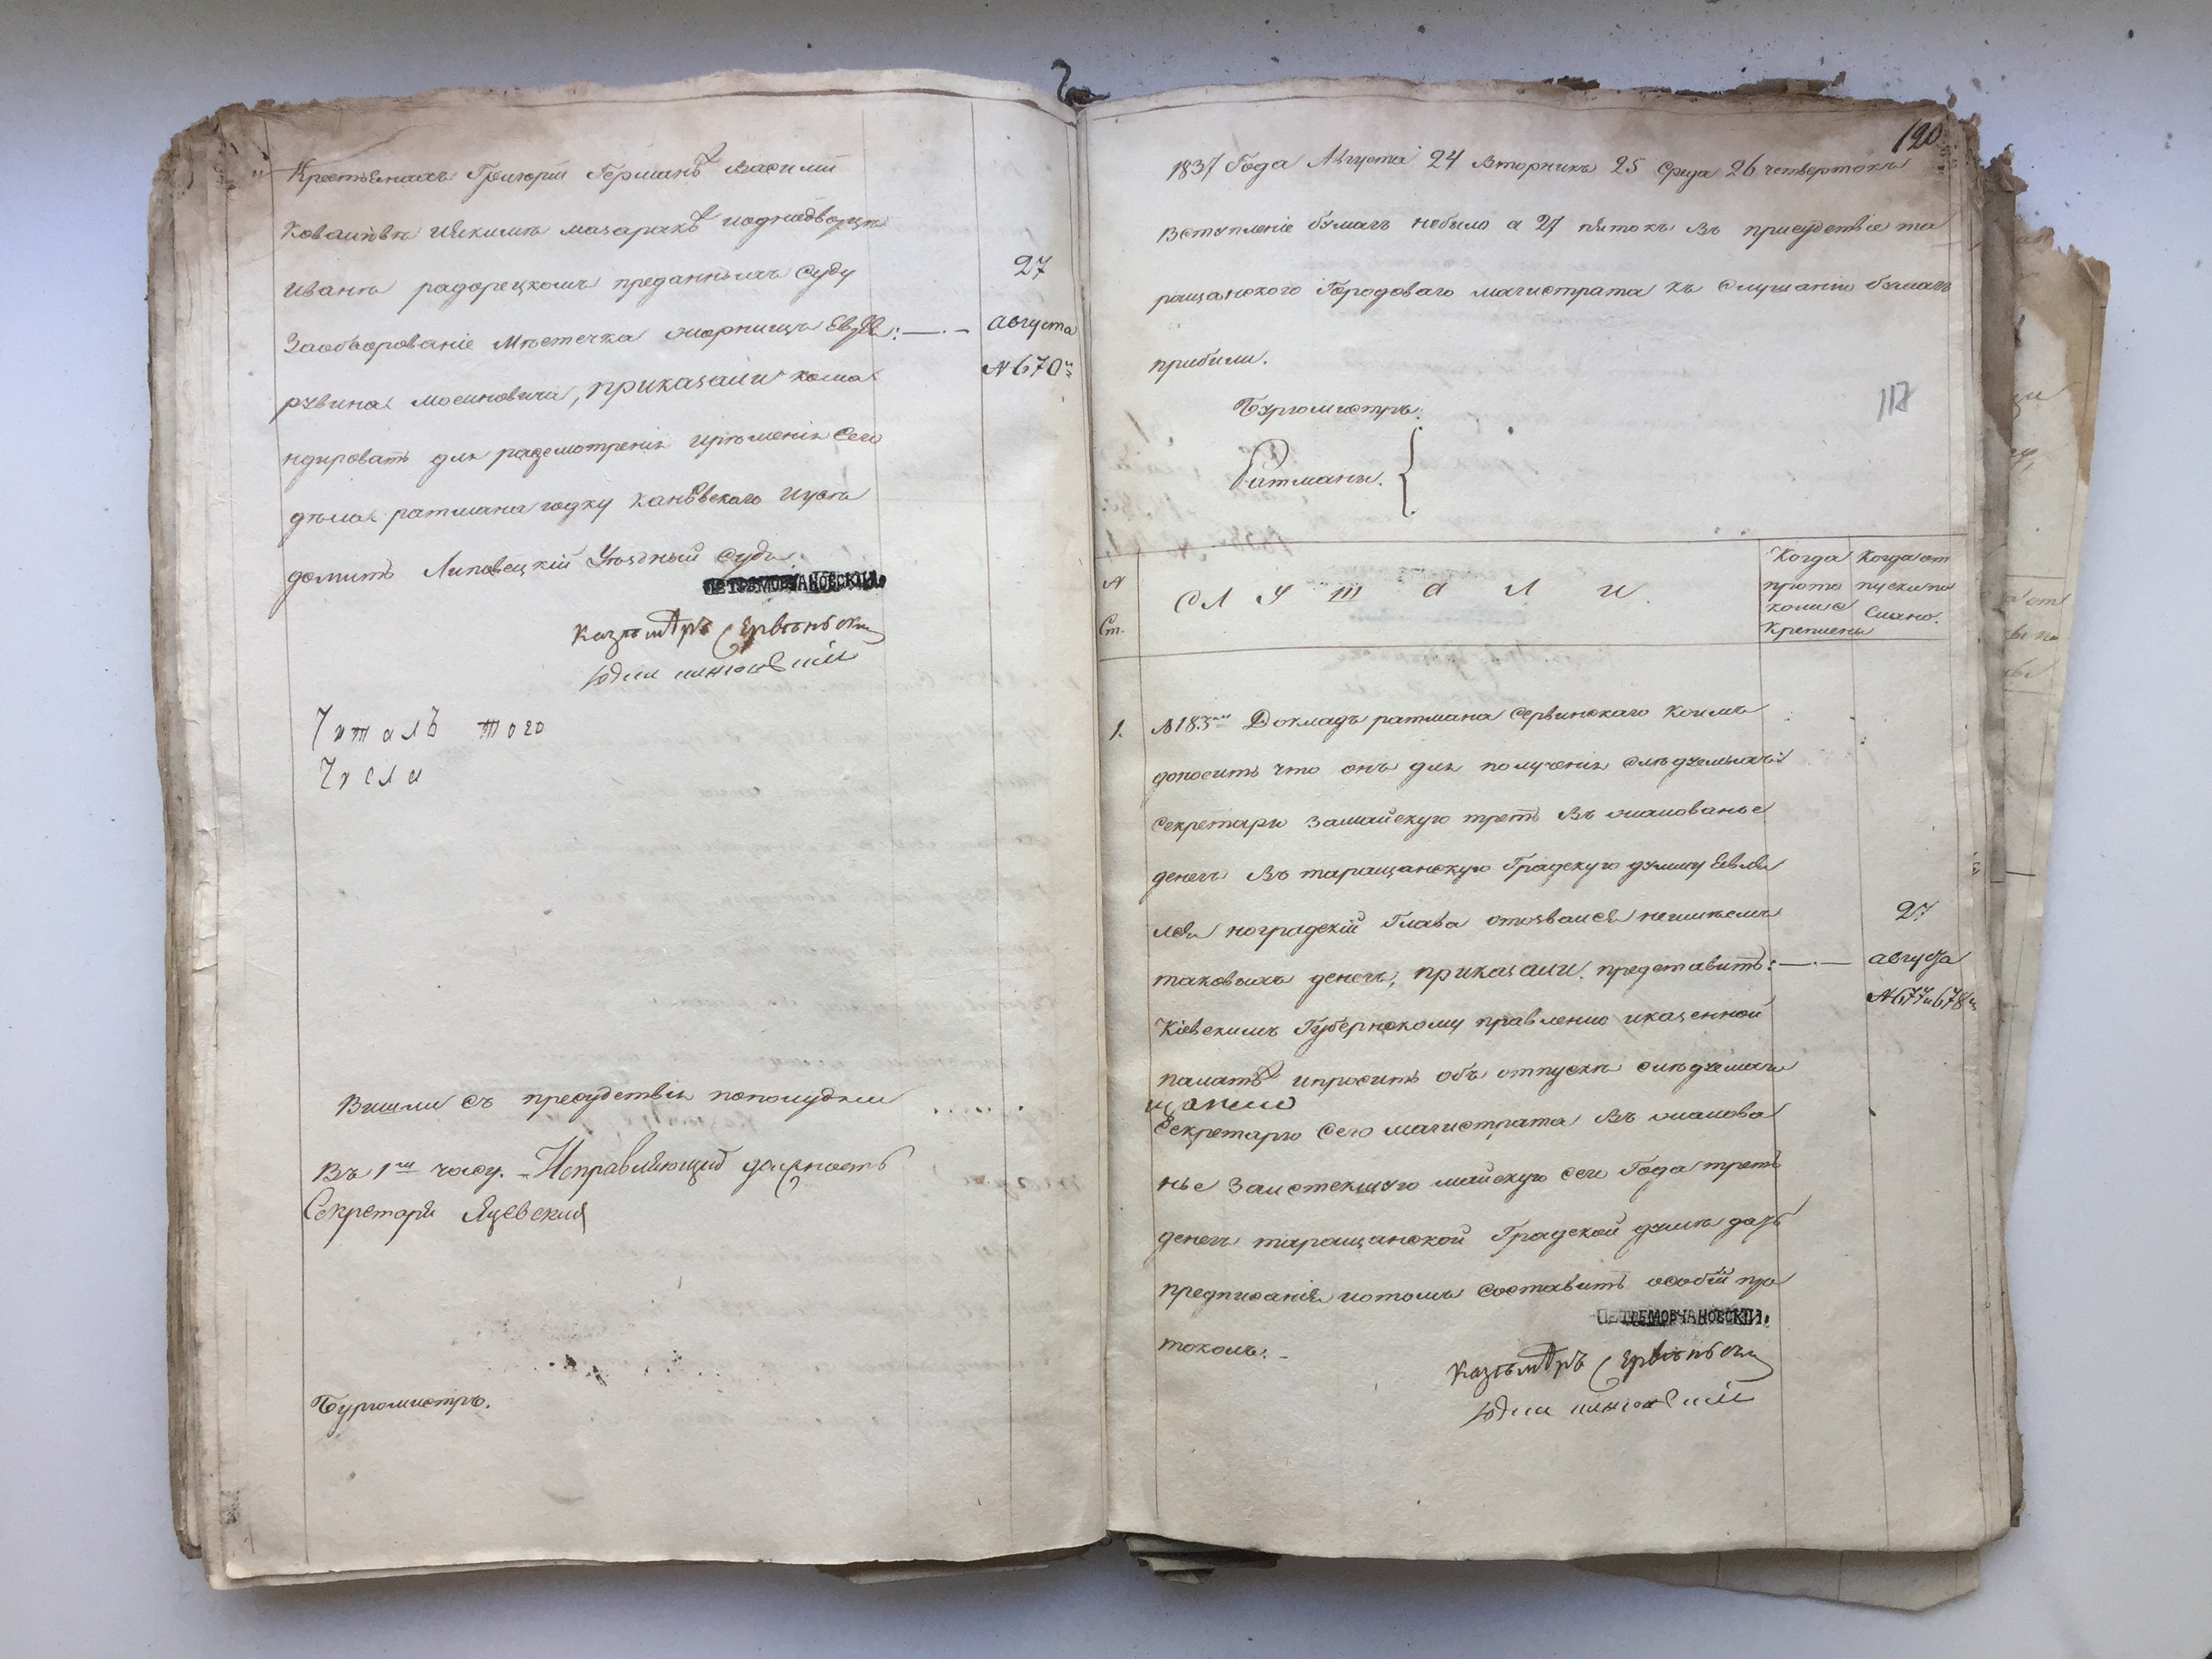 Крестьянахъ Григорій Германѣ Василій
Ковалювѣ Иякимѣ мазаракѣ иоднодворцѣ
Иванѣ радорецкомъ преданныхъ Суду
Заобворованіе Мѣстечка Евреа
рувина мосиновича, приказали кома
ндировать для разсмотренія ирѣшенія Сего
дѣла ратмана годку каневскаго иувѣ
домить Липовецкій Уѣздный Судъ.
27
Августа
№ 670й
ПЕТРЪ МОВЧАНОВСКІЙ
казымѣръ Сервѣньски
Читалъ того
Числа
Вишли съ пресудствія пополудни
Въ 1мъ часу. Исправляющій должность
Секретаря Яцевский
Бургомистръ.
120
1837 Года Августа 24 Вторникъ 25 Среда 26 четвертокъ
Вступленіе бумагъ небыло а 27 пятокъ Въ присудствіе та
ращанского Городоваго магистрата къ Слушанію бумагъ
прибили.
118
Бургомистръ.
Ратманы.
№
Ст.
С Л У Ш А Л И.
Когда
прото
колис
Крепленъ
Когда от
пускъпи
Сано.
1. №183й Докладъ ратмана Сервинскаго коимъ
доноситъ что онъ для полученія Слѣдуемыхъ
Секретарю Замайскую треть Въ жалованье
денегъ Въ таращанскую Градскую думу Евля
лся ноградскій Глава отозвался неимѣемъ
таковыхъ денегъ, приказали: представить:
Кіевскимъ Губернскому правленію иказенной
палатѣ ипросить объ отпускѣ Слѣдуемыхъ
Секретарю Сего магистрата Въ жалова
нье Заистекшую майскую Сего Года треть
денегъ таращанской Градской думѣ дать
предписанія иотомъ Составить особій про
токолъ.
27
августа
№677и678й
ПЕТРЪ МОВЧАНОВСКІЙ
казымѣръ Сервѣньски